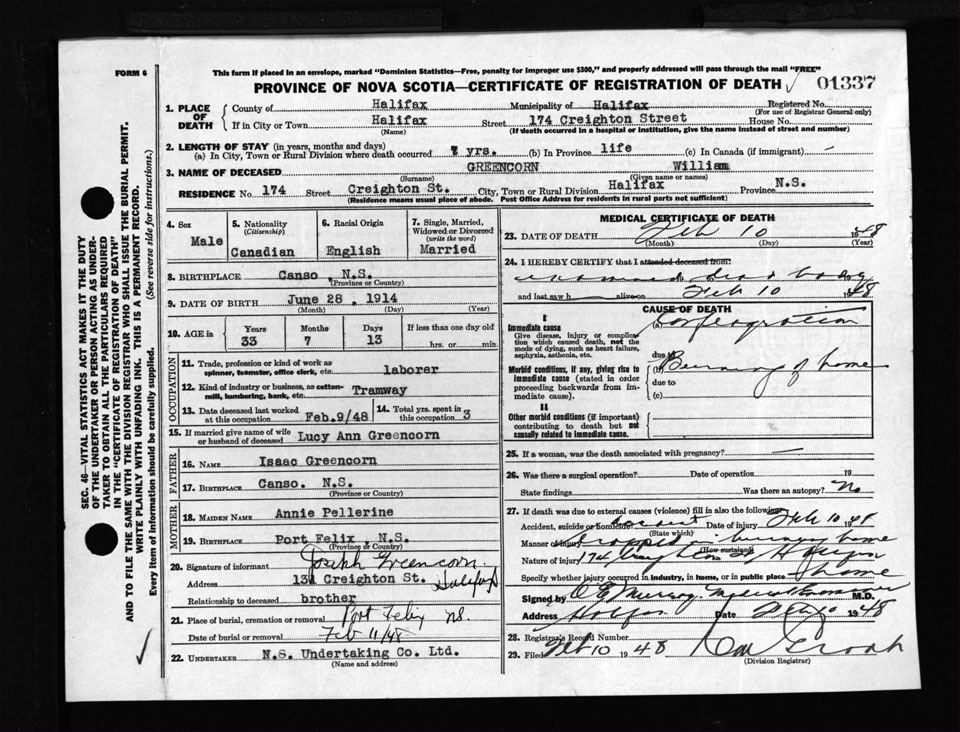 FORM 6
This form if placed in an envelope, marked "Dominion Statistics—Free, penalty for improper use $300," and properly addressed will pass through the mail "FREE"
PROVINCE OF NOVA SCOTIA—CERTIFICATE OF REGISTRATION OF DEATH
01337
1. PLACE OF DEATH
County of Halifax Municipality of Halifax Registered No.
(For use of Registrar General only)
If in City or Town Halifax Street 174 Creighton Street House No.
(Name) (If death occurred in a hospital or institution, give the name instead of street and number)
2. LENGTH OF STAY (in years, months and days)
(a) In City, Town or Rural Division where death occurred 7 yrs. (b) In Province life (c) In Canada (if immigrant) -
3. NAME OF DECEASED GREENCORN William
(Surname) (Given name or names)
RESIDENCE No 174 Street Creighton St. City, Town or Rural Division Halifax Province N.S.
(Residence means usual place of abode. Post Office Address for residents in rural parts not sufficient)
4. Sex Male
5. Nationality (Citizenship) Canadian
6. Racial Origin English
7. Single, Married, Widowed or Divorced (write the word) Married
8. BIRTHPLACE Canso, N.S.
(Province or Country)
9. DATE OF BIRTH June 28, 1914
(Month) (Day) (Year)
10. AGE in Years Months Days If less than one day old
33 7 13 hrs. or min.
OCCUPATION
11. Trade, profession or kind of work as spinner, teamster, office clerk, etc. laborer
12. Kind of industry or business, as cotton-mill, lumbering, bank, etc. Tramway
13. Date deceased last worked at this occupation Feb.9/48
14. Total yrs. spent in this occupation 3
15. If married give name of wife or husband of deceased Lucy Ann Greencorn
FATHER
16. NAME Isaac Greencorn
17. BIRTHPLACE Canso. N.S.
(Province or Country)
MOTHER
18. MAIDEN NAME Annie Pellerine
19. BIRTHPLACE Port Felix, N.S.
(Province or Country)
20. Signature of informant Joseph Greencorn.
Address Creighton St. Halifax
Relationship to deceased brother
21. Place of burial, cremation or removal Port Felix NS.
Date of burial or removal Feb 11/48
22. UNDERTAKER N.S. Undertaking Co. Ltd.
(Name and address)
MEDICAL CERTIFICATE OF DEATH
23. DATE OF DEATH Feb 10 1948
(Month) (Day) (Year)
24. I HEREBY CERTIFY that I attended deceased from:
dead body
and last saw h alive on Feb 10 1948
CAUSE OF DEATH
I
Immediate cause
Give disease, injury or complication which caused death, not the mode of dying, such as heart failure, asphyxia, asthenia, etc.
(a) Conflagration
due to
Morbid conditions, if any, giving rise to immediate cause (stated in order proceeding backwards from immediate cause).
(b) Burning of home
due to
(c)
II
Other morbid conditions (if important) contributing to death but not causally related to immediate cause.
25. If a woman, was the death associated with pregnancy? —
26. Was there a surgical operation? Date of operation 19
State findings Was there an autopsy? No
27. If death was due to external causes (violence) fill in also the following:
Accident, suicide or homicide? Accident Date of injury Feb 10 1948
(State which)
Manner of injury Trapped in burning home
(How sustained)
Nature of injury 174 Creighton St Halifax
Specify whether injury occurred in industry, in home, or in public place home
Signed by M.D.
Address Halifax Date Feb 10 1948
28. Registrar's Record Number
29. Filed Feb 10 1948
(Division Registrar)
SEC. 46—VITAL STATISTICS ACT MAKES IT THE DUTY
OF THE UNDERTAKER OR PERSON ACTING AS UNDER-
TAKER TO OBTAIN ALL THE PARTICULARS REQUIRED
IN THE "CERTIFICATE OF REGISTRATION OF DEATH"
AND TO FILE THE SAME WITH THE DIVISION REGISTRAR WHO SHALL ISSUE THE BURIAL PERMIT.
WRITE PLAINLY WITH UNFADING INK. THIS IS A PERMANENT RECORD.
Every item of information should be carefully supplied. (See reverse side for instructions.)